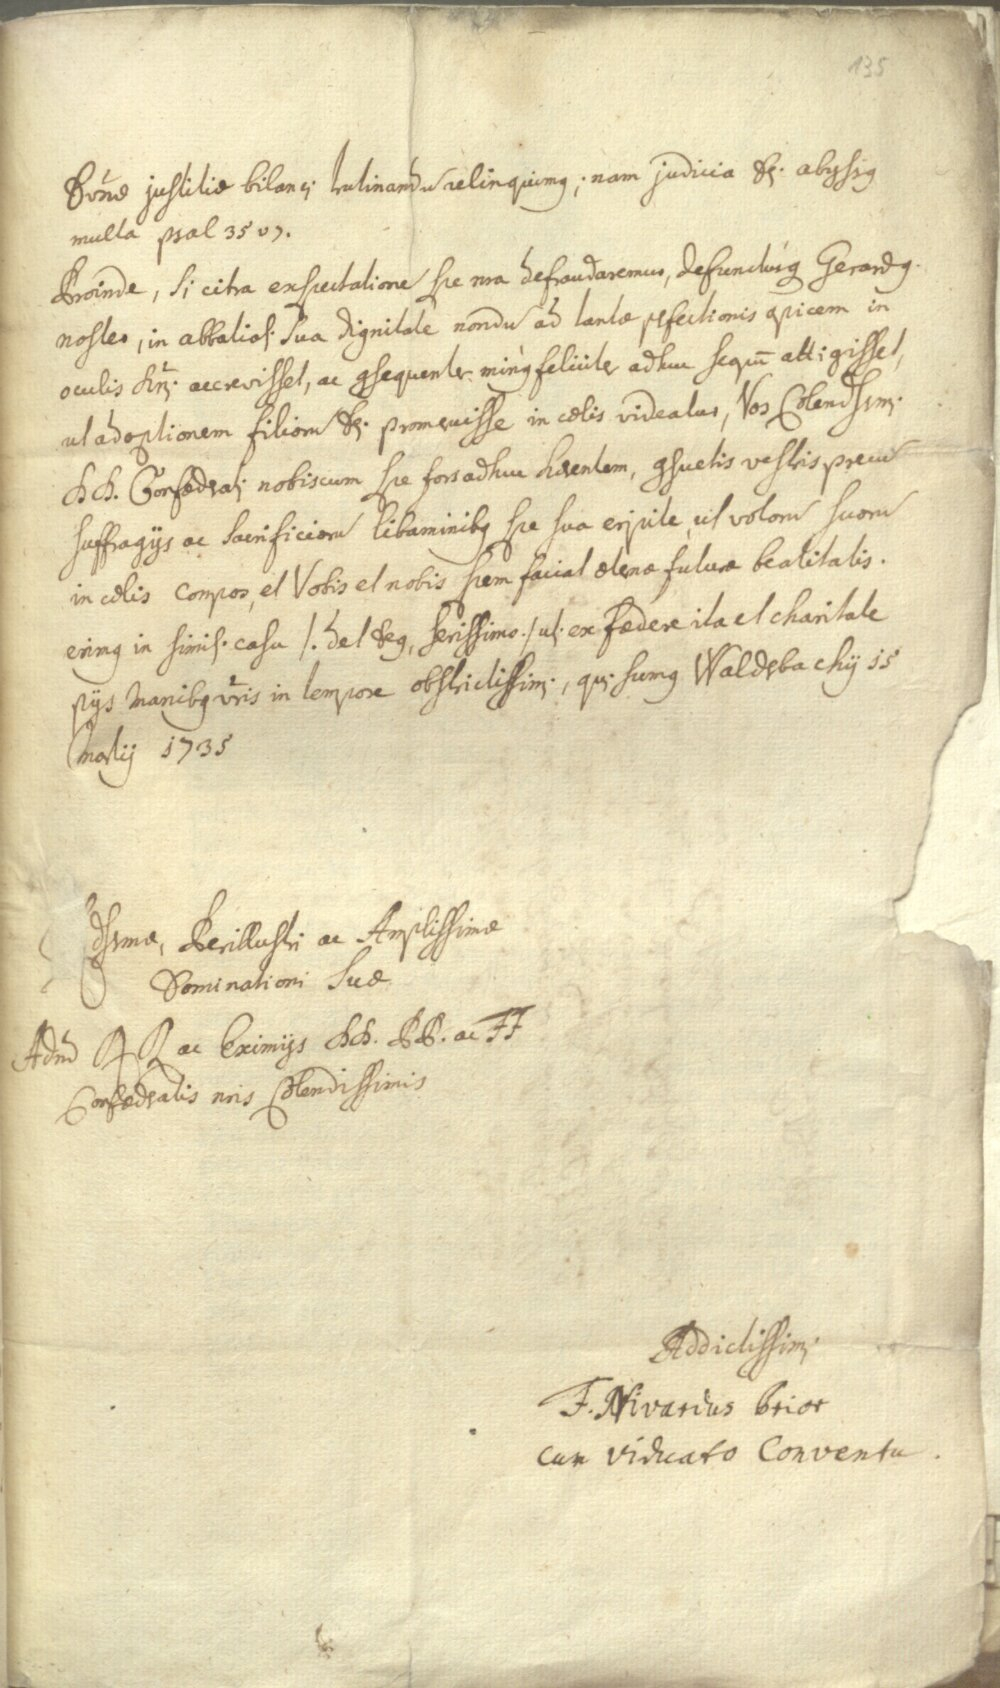 135
Divinæ justitiæ bilanci trutinandū relinquimg; nam judicia Dei abyssg
multa psal 35 v 7.
Proinde, si citra expectationē spe nrā defraudaremur, defunctusq Gerardg
noster, in abbatiali sua dignitate nondū ad tantæ pfectionis apicem in
oculis Dni accrevisset, ac gsequenter ming feliciter adhuc scopū attigisset,
ut adoptionem filiorū Dei promeruisse in cœlis videatur, Vos Colendssmi
DD. Confœderati nobiscum spe fors adhuc hærentem, gsuetis vestris precū
suffragijs ac sacrificiorū libaminibg spe sua eripite, ut votorū suorū
in cœlis compos, et Vobis et nobis spem faciat æternæ futuræ beatitatis.
erimg in simili casu /. det Deg, serissimo ./ uti ex fœdere ita et charitate
pijs Manibg vris in tempore obstrictissimi, qui sumg Walderbachij 15
Martij 1735
Rdssmæ, Perillustri ac Amplissimæ
Dominationi Suæ
Admd RR ac Eximijs DD. PP. ac FF
Confœderatis nris Colendissimis
Addictissimi
F. Nivardus Prior
cum viduato Conventu.